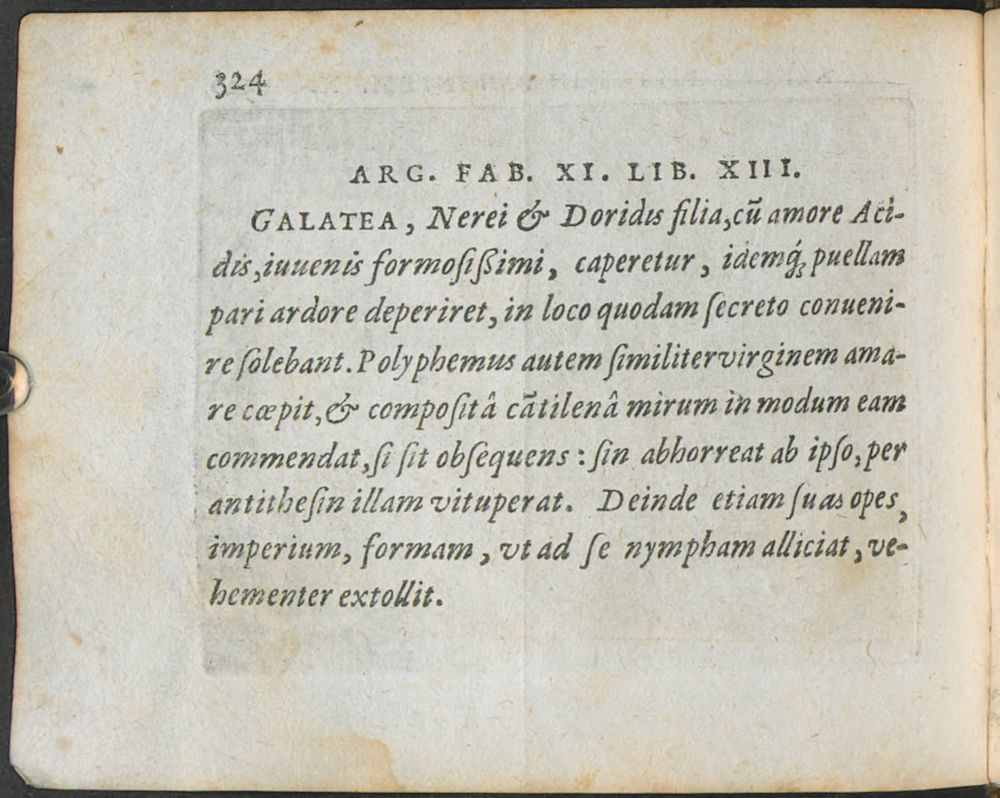 324
ARG. FAB. XI. LIB. XIII.
GALATEA, Nerei & Doridis filia, cū amore Aci-
dis, iuuenis formosißimi, caperetur, idemq́; puellam
pari ardore deperiret, in loco quodam secreto conueni-
re solebant. Polyphemus autem similiter virginem ama-
re cœpit, & compositâ cātilenâ mirum in modum eam
commendat, si sit obsequens: sin abhorreat ab ipso, per
antithesin illam vituperat. Deinde etiam suas opes,
imperium, formam, vt ad se nympham alliciat, ve-
hementer extollit.